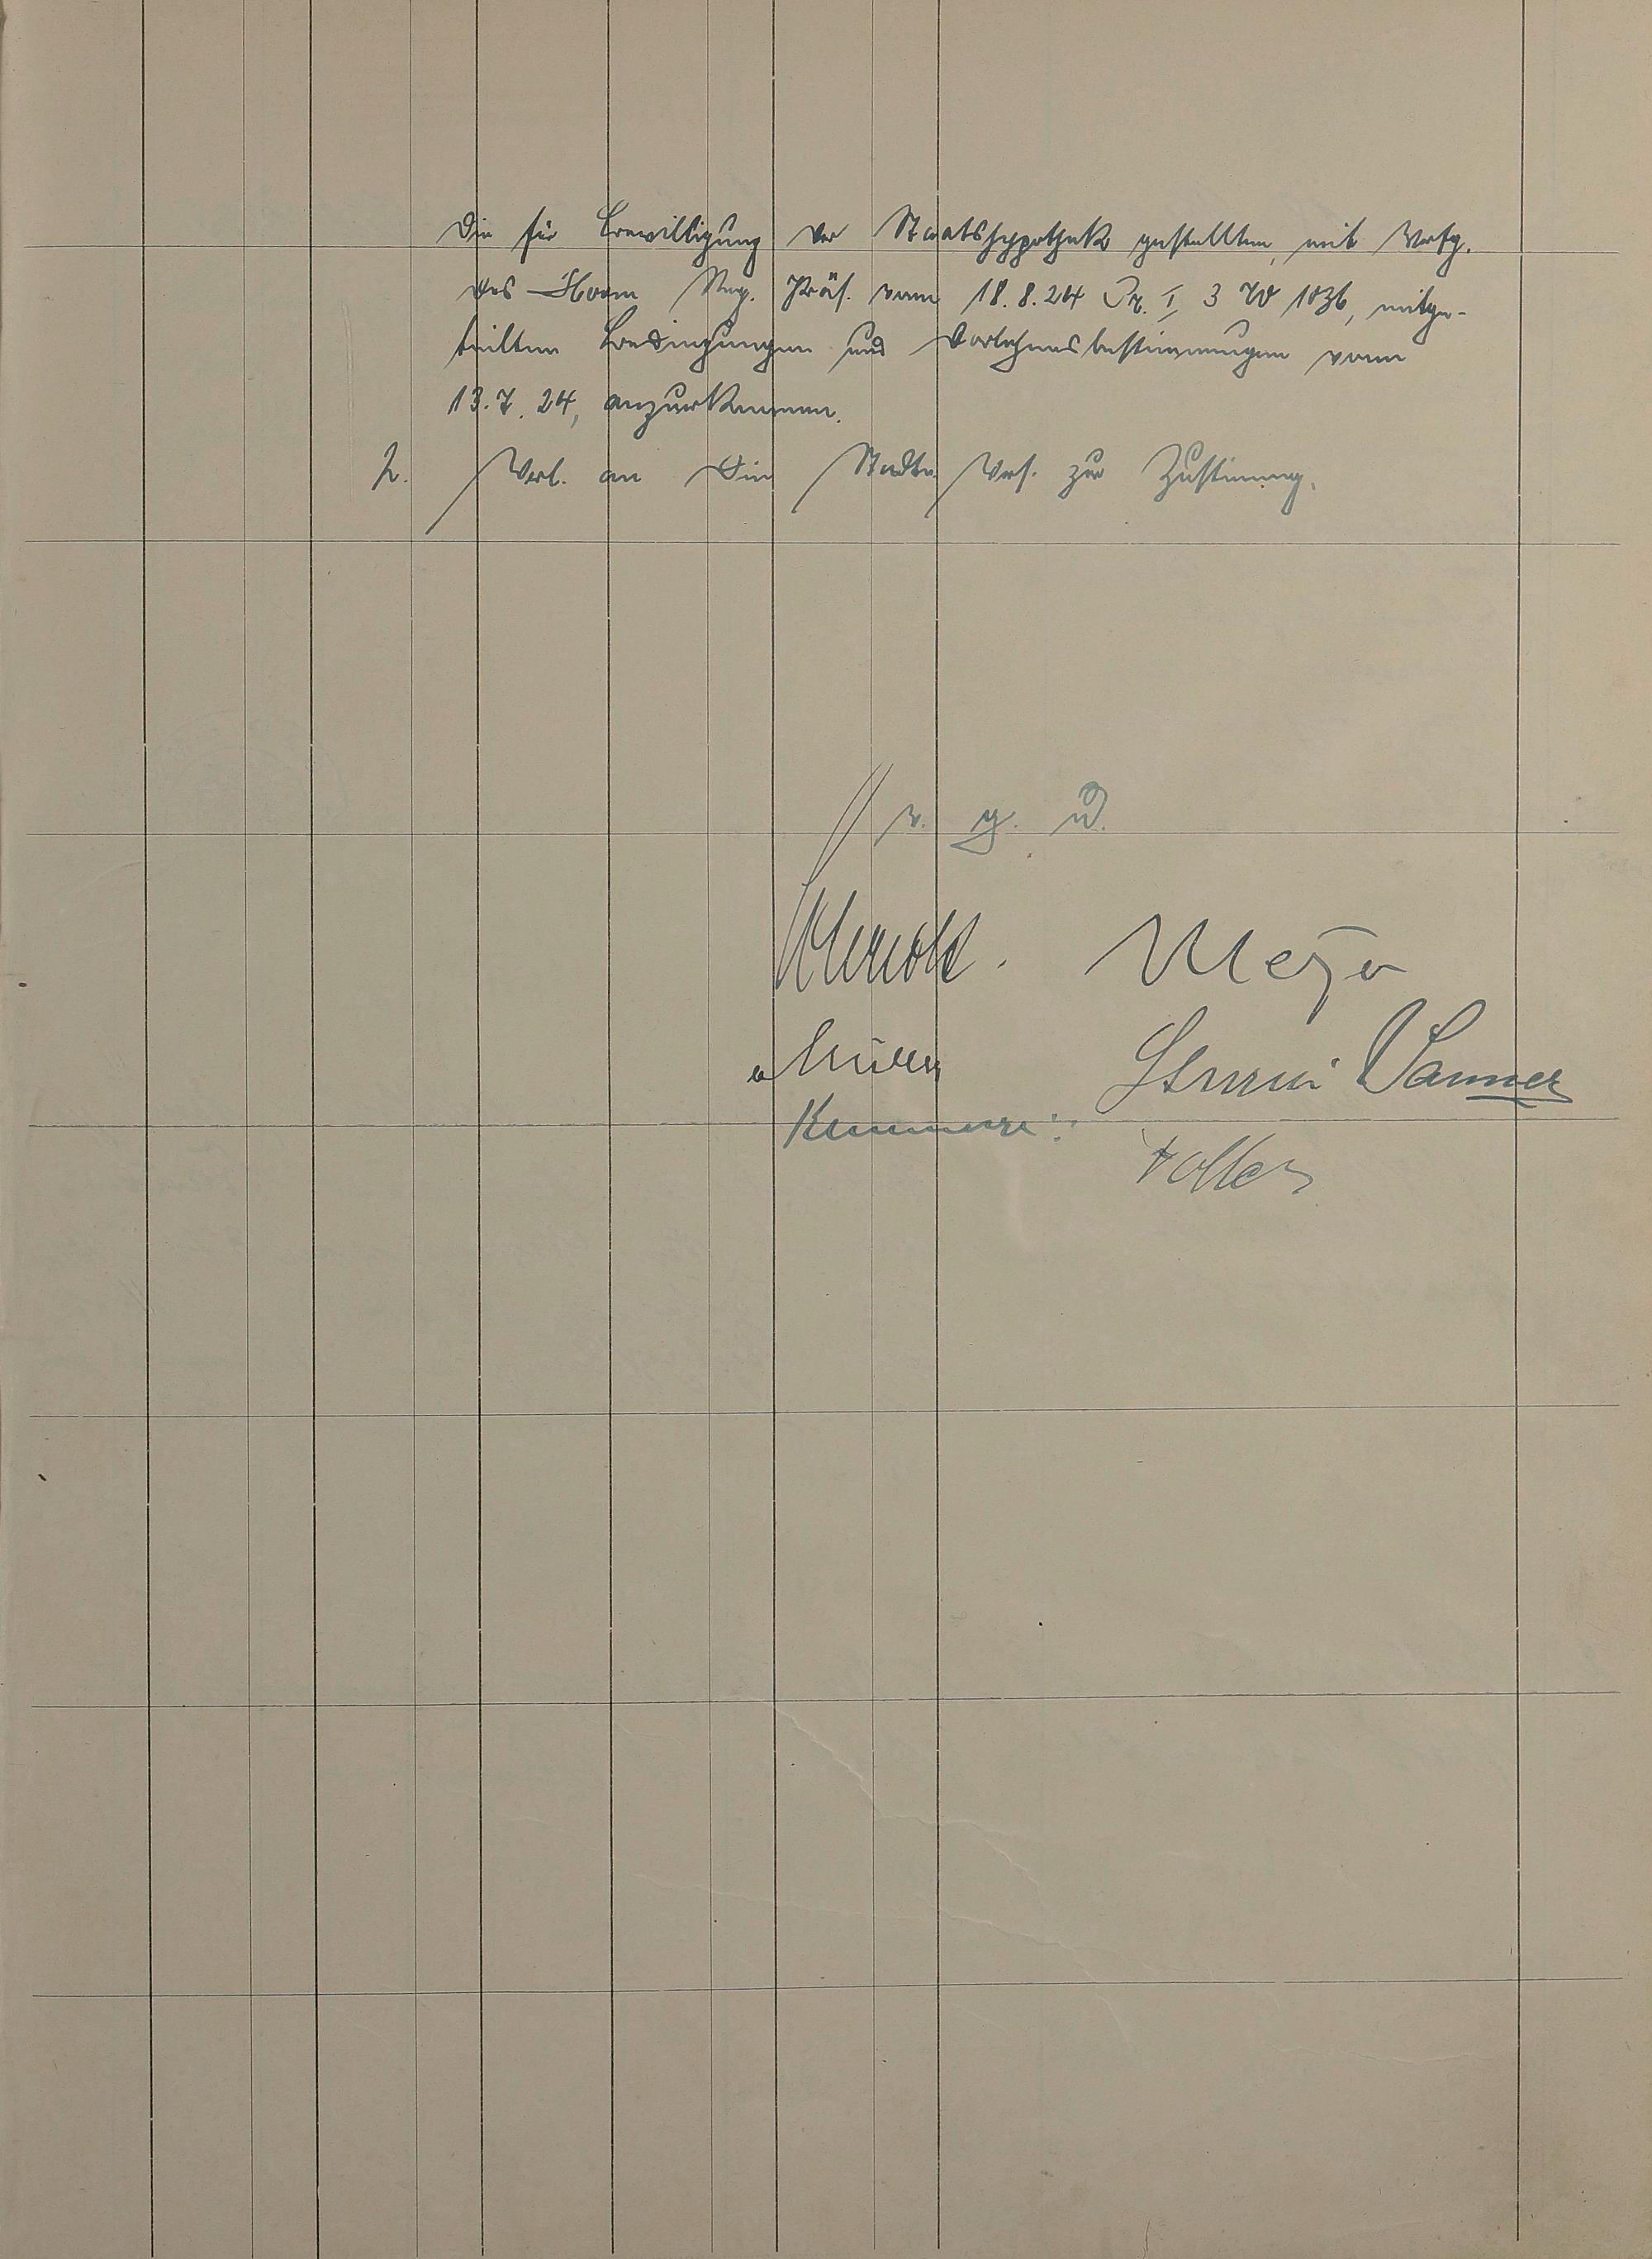 Die für Bewilligung der Staatshypothek gestellten, mit Verfg.
des Herrn Reg. Präs. vom 18.8.24 Pr. I 3 W 1036, mitge-
teilten Bedingungen und Darlehensbestimmungen vom
13.7.24, anzuerkennen.
2. Vorl. an die Stadtv. Vers. zur Zustimmung.
v. g. u.
Meyer
Müller